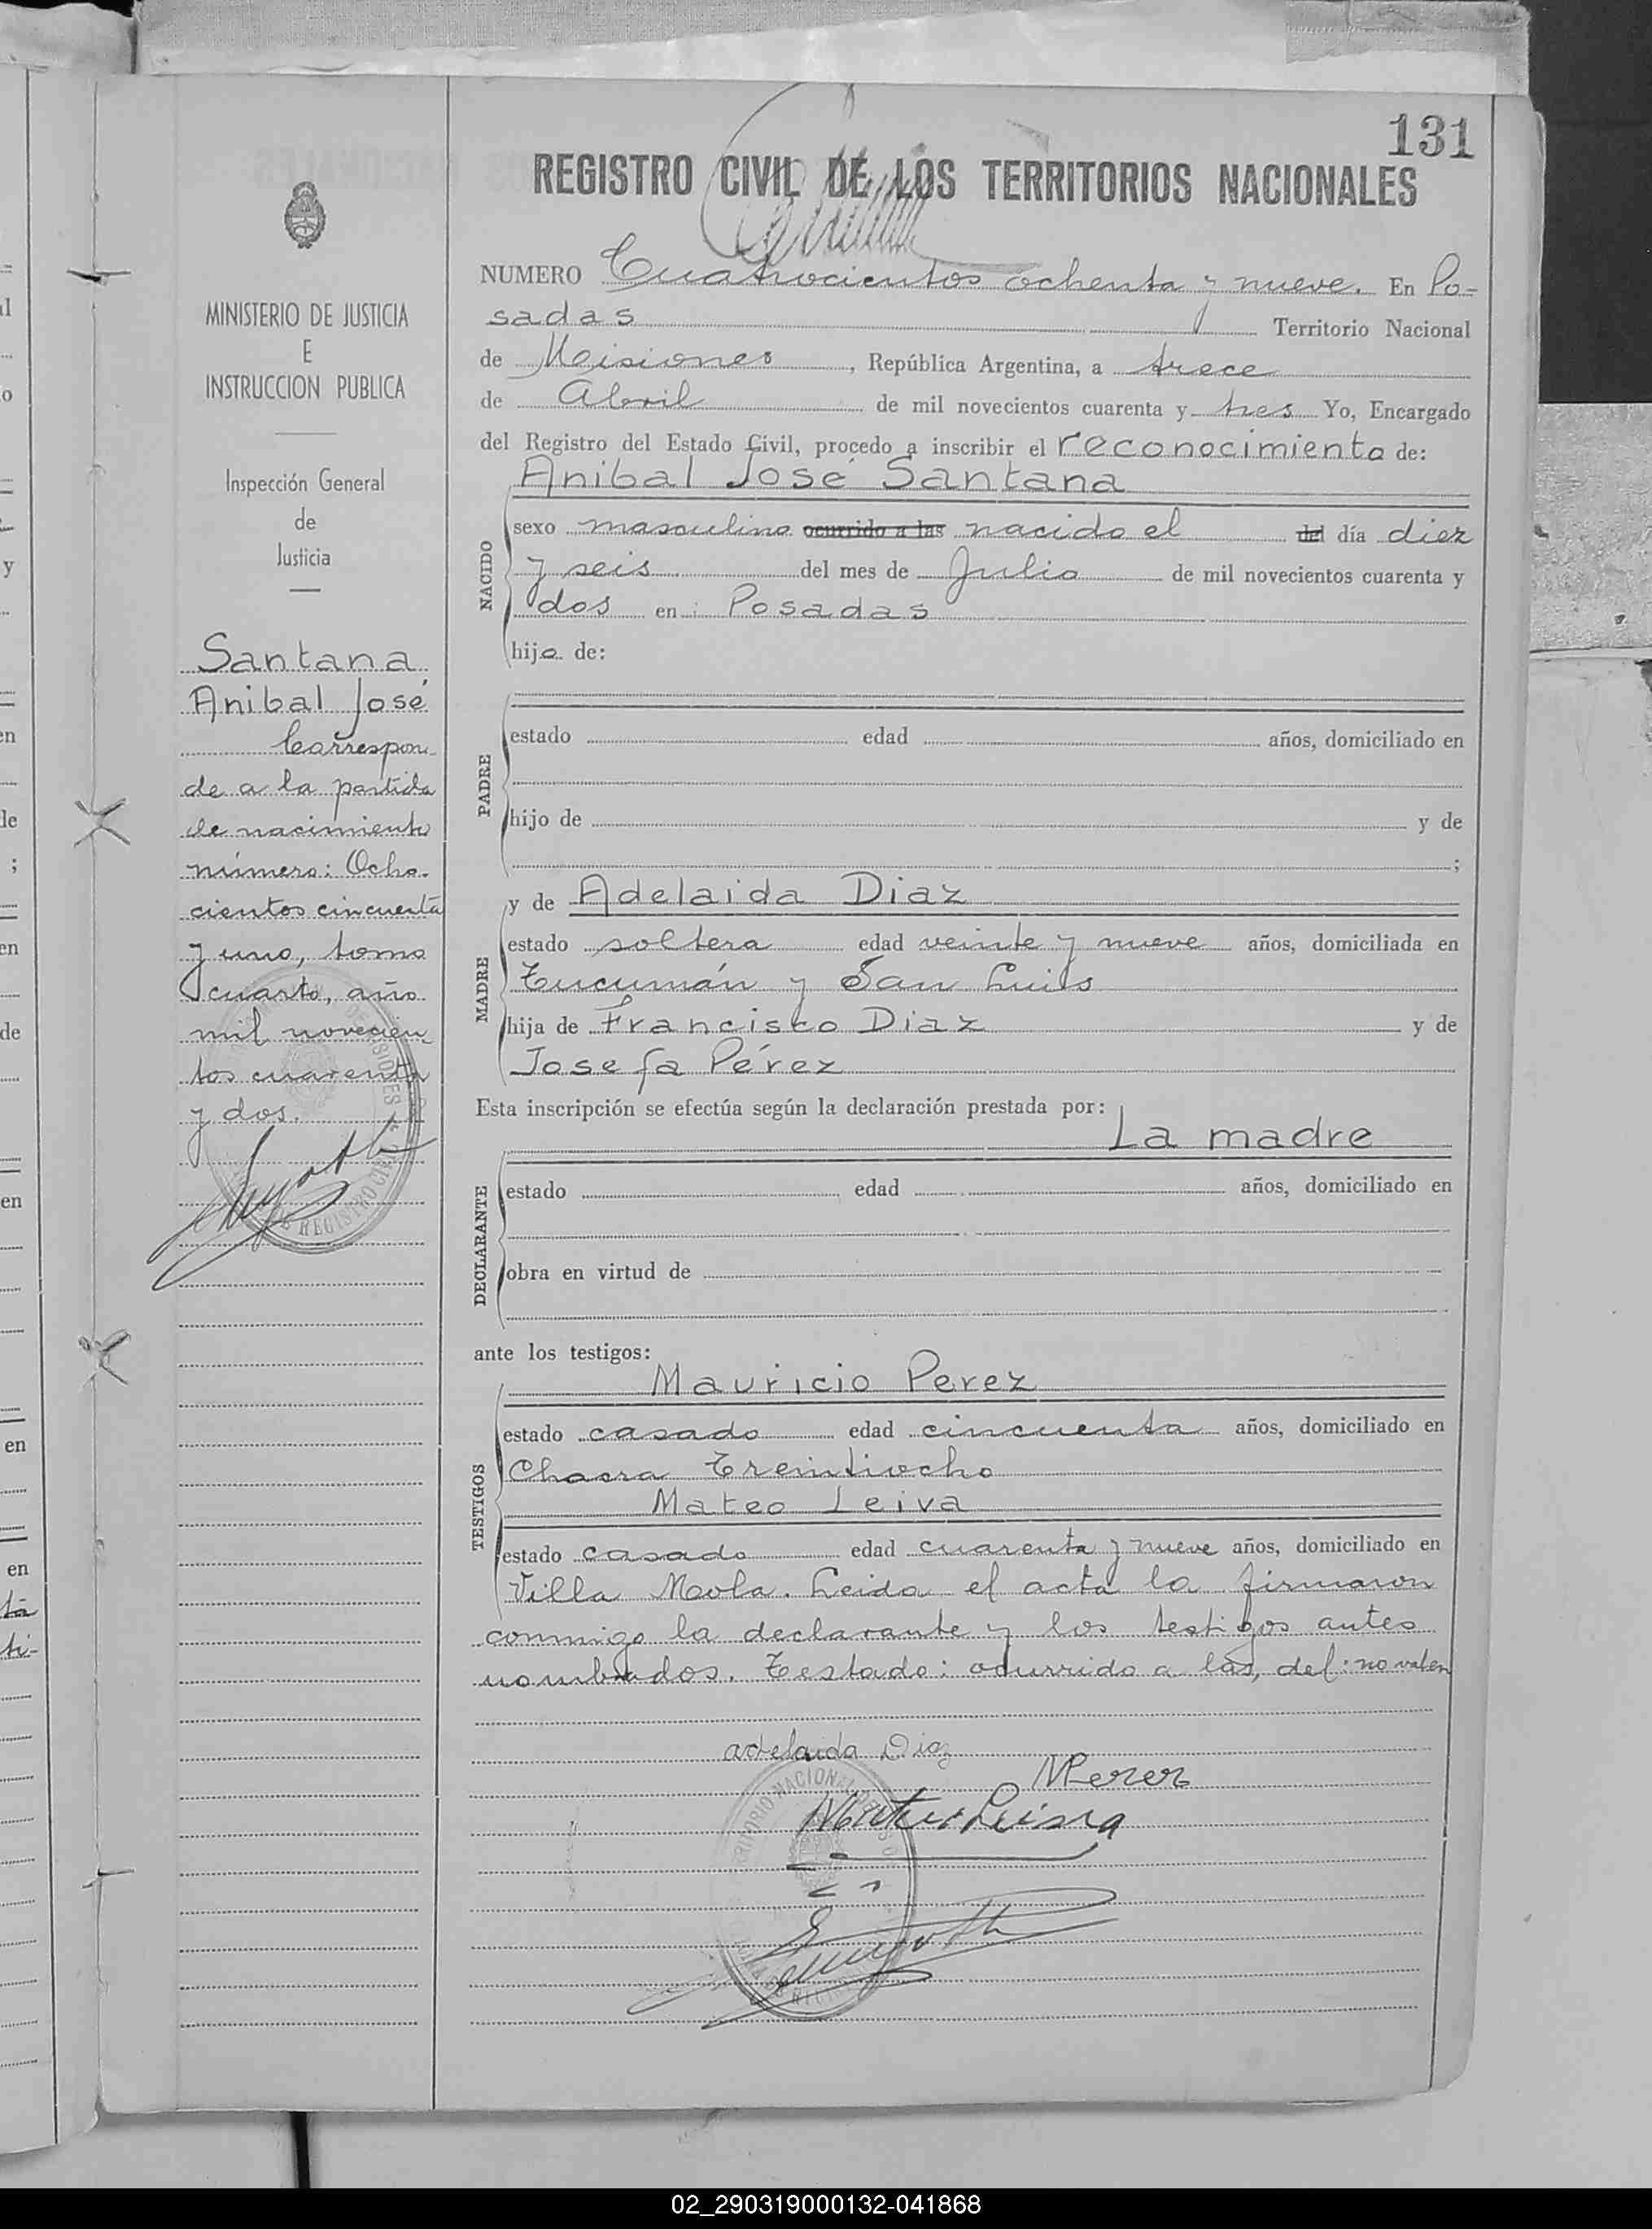 131
REGISTRO CIVIL DE LOS TERRITORIOS NACIONALES
MINISTERIO DE JUSTICIA
E
INSTRUCCION PUBLICA
Inspección General
de
Justicia
Santana
Anibal José
Correspon-
de a la partida
de nacimiento
número: Ocho-
cientos cincuenta
y uno, tomo
cuarto, año
mil novecien
tos cuarenta
y dos.
NUMERO Cuatrocientos ochenta y nueve. En Po-
sadas Territorio Nacional
de Misiones, República Argentina, a trece
de Abril de mil novecientos cuarenta y tres Yo, Encargado
del Registro del Estado Civil, procedo a inscribir el reconocimiento de:
Anibal José Santana
NACIDO
sexo masculino ocurrido a las nacido el del día diez
y seis del mes de Julio de mil novecientos cuarenta y
dos en: Posadas
hijo de:
PADRE
estado edad años, domiciliado en
hijo de y de
;
y de Adelaida Diaz
MADRE
estado soltera edad veinte y nueve años, domiciliada en
Tucumán y San Luis
hija de Francisco Diaz y de
Josefa Pérez
Esta inscripción se efectúa según la declaración prestada por:
La madre
DECLARANTE
estado edad años, domiciliado en
obra en virtud de
ante los testigos:
Mauricio Perez
TESTIGOS
estado casado edad cincuenta años, domiciliado en
Chacra Treintiocho
Mateo Leiva
estado casado edad cuarenta y nueve años, domiciliado en
Villa Mola. Leida el acta la firmaron
conmigo la declarante y los testigos antes
nombrados. Testado: ocurrido a las, del: no valen
adelaida Diaz
MPerez
Mateo Leiva
02_290319000132-041868